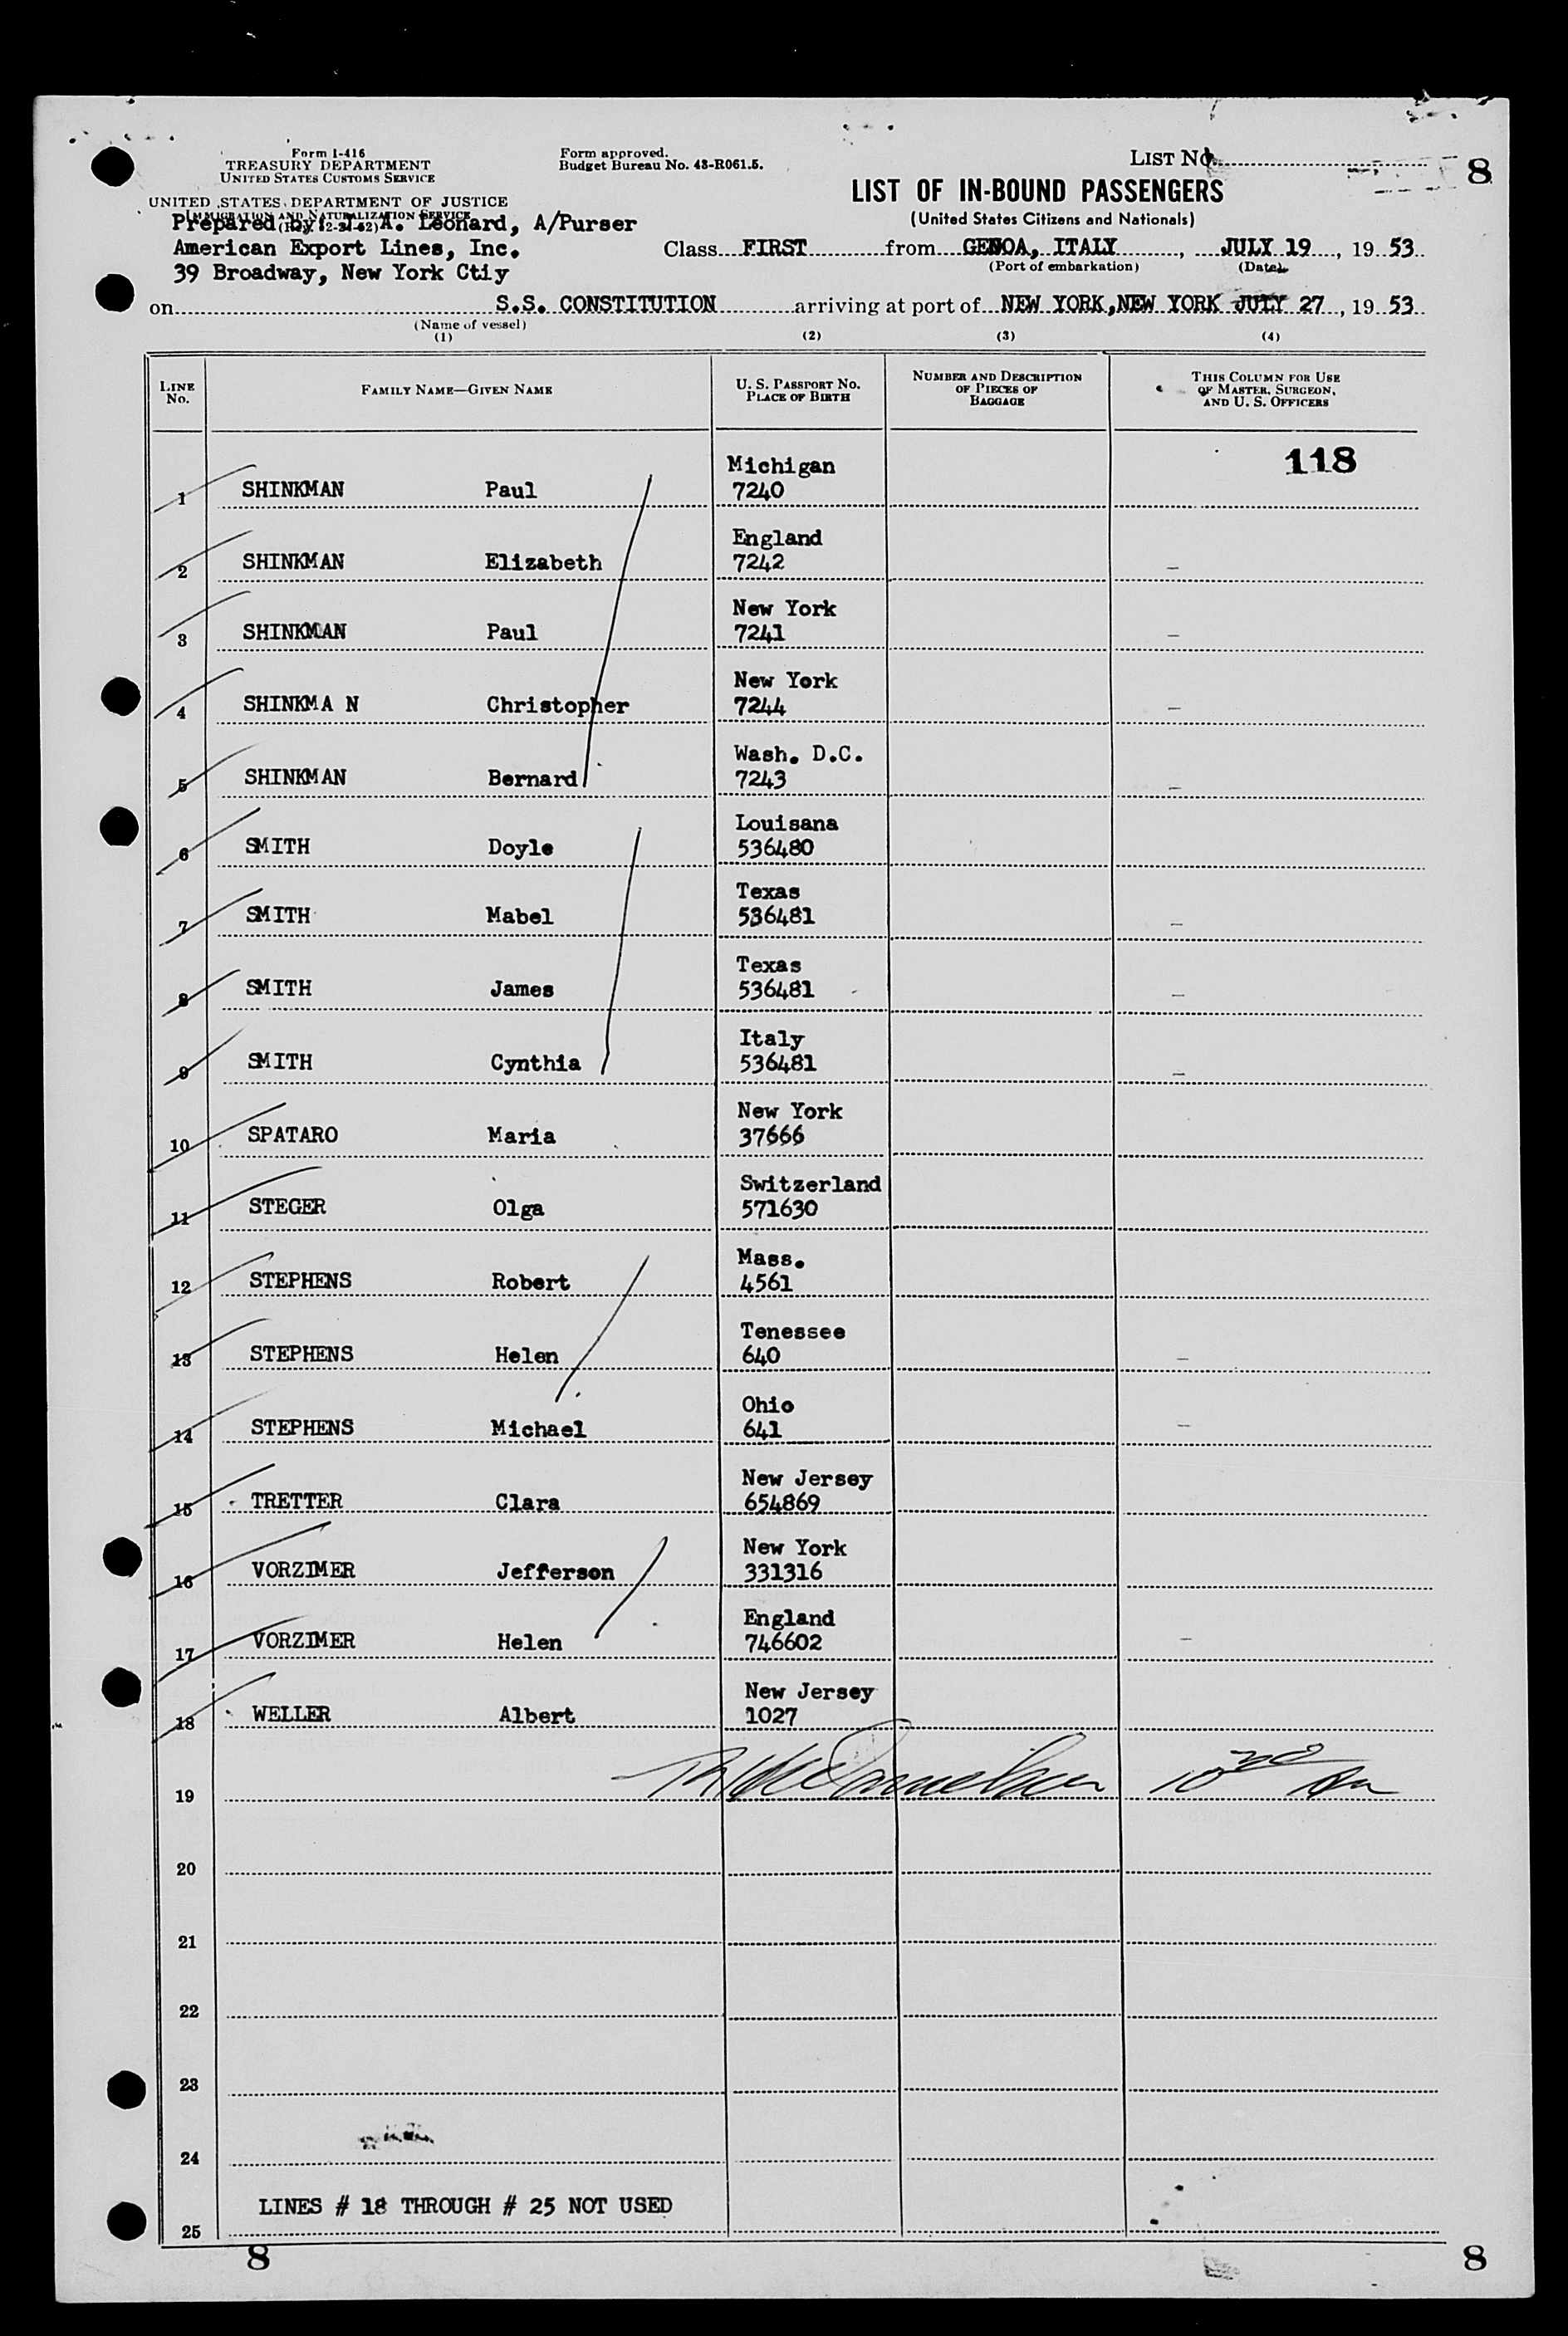 Form I-416
TREASURY DEPARTMENT
UNITED STATES CUSTOMS SERVICE
Form approved.
Budget Bureau No. 43-R061.5.
LIST No.
8
UNITED STATES DEPARTMENT OF JUSTICE
IMMIGRATION AND NATURALIZATION SERVICE
LIST OF IN-BOUND PASSENGERS
(United States Citizens and Nationals)
Prepared by: A. Leonard, A/Purser
American Export Lines, Inc.
39 Broadway, New York Ctiy
Class FIRST from GENOA, ITALY, JULY 19, 19 53
(Port of embarkation) (Date)
on S.S. CONSTITUTION arriving at port of NEW YORK, NEW YORK JULY 27, 19 53
(Name of vessel)
(1) (2) (3) (4)
LINE No. FAMILY NAME—GIVEN NAME U. S. PASSPORT No. PLACE OF BIRTH NUMBER AND DESCRIPTION OF PIECES OF BAGGAGE THIS COLUMN FOR USE OF MASTER, SURGEON, AND U. S. OFFICERS
118
Michigan
1 SHINKMAN Paul 7240
England
2 SHINKMAN Elizabeth 7242 –
New York
3 SHINKMAN Paul 7241 –
New York
4 SHINKMA N Christopher 7244 –
Wash. D.C.
5 SHINKMAN Bernard 7243 –
Louisana
6 SMITH Doyle 536480
Texas
7 SMITH Mabel 536481 –
Texas
8 SMITH James 536481 –
Italy
9 SMITH Cynthia 536481 –
New York
10 SPATARO Maria 37666
Switzerland
11 STEGER Olga 571630
Mass.
12 STEPHENS Robert 4561
Tenessee
13 STEPHENS Helen 640 –
Ohio
14 STEPHENS Michael 641 –
New Jersey
15 TRETTER Clara 654869
New York
16 VORZIMER Jefferson 331316
England
17 VORZIMER Helen 746602 –
New Jersey
18 WELLER Albert 1027
19
20
21
22
23
24
LINES # 18 THROUGH # 25 NOT USED
25
8 8